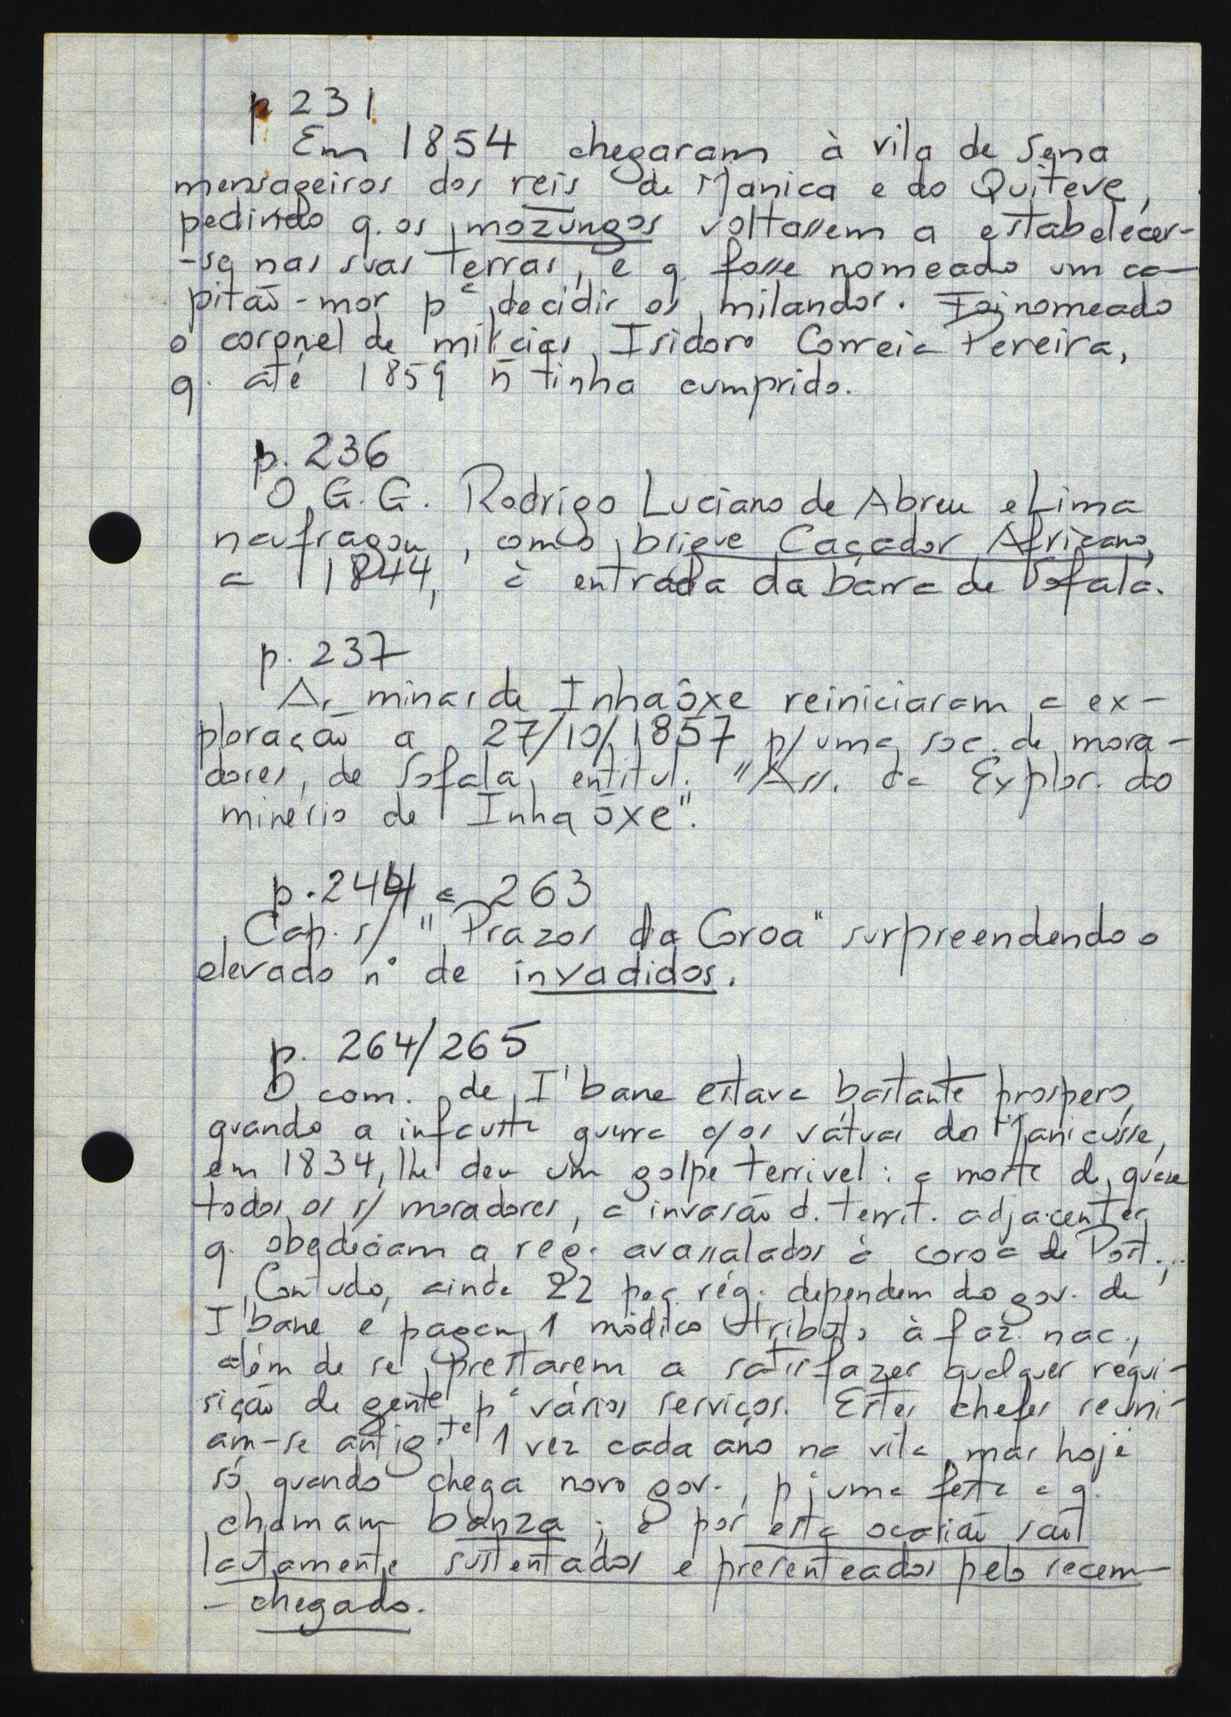 p 231
Em 1854 chegaram à vila de Sena
mensageiros dos reis de Manica e do Quiteve,
pedindo q. os mozungos voltassem a estabelecer-
-se nas suas terras, e q. fosse nomeado um ca-
pitão-mor pª decidir os milandos. Foi nomeado
o coronel de milicias, Isidoro Correia Pereira,
q. até 1859 ñ tinha cumprido.
p. 236
O G. G. Rodrigo Luciano de Abreu e Lima
naufragou, com o brigue Caçador Africano,
a 1844, à entrada da barra de Sofala.
p. 237
As minas de Inhaôxe reiniciaram a ex-
ploração a 27/10/1857 p/ uma soc. de mora-
dores, de Sofala, entitul. "Ass. da Explor. do
minério de Inhaôxe".
p. 244 a 263
Cap. s/ "Prazos da Coroa" surpreendendo o
elevado nº de invadidos.
p. 264/265
O com. de I'bane estava bastante prospero,
quando a infausta guerra c/ os vátuas do Manicusse,
em 1834, lhe deu um golpe terrivel: a morte de quase
todos os s/ moradores, a invasão d. territ. adjacentes
q. obedeciam a reg. avassalados à coroa de Port...
Contudo, ainda 22 peq. rég. dependem do gov. de
I'bane e pagam 1 módico tributo à faz. nac.,
além de se prestarem a satisfazer qualquer requi-
sição de gente pª vários serviços. Estes chefes reuni-
am-se antig.te 1 vez cada ano na vila, mas hoje
só quando chega novo gov., p/ uma festa a q.
chamam banza; e por esta ocasião são
lautamente sustentados e presenteados pelo recem-
-chegado.